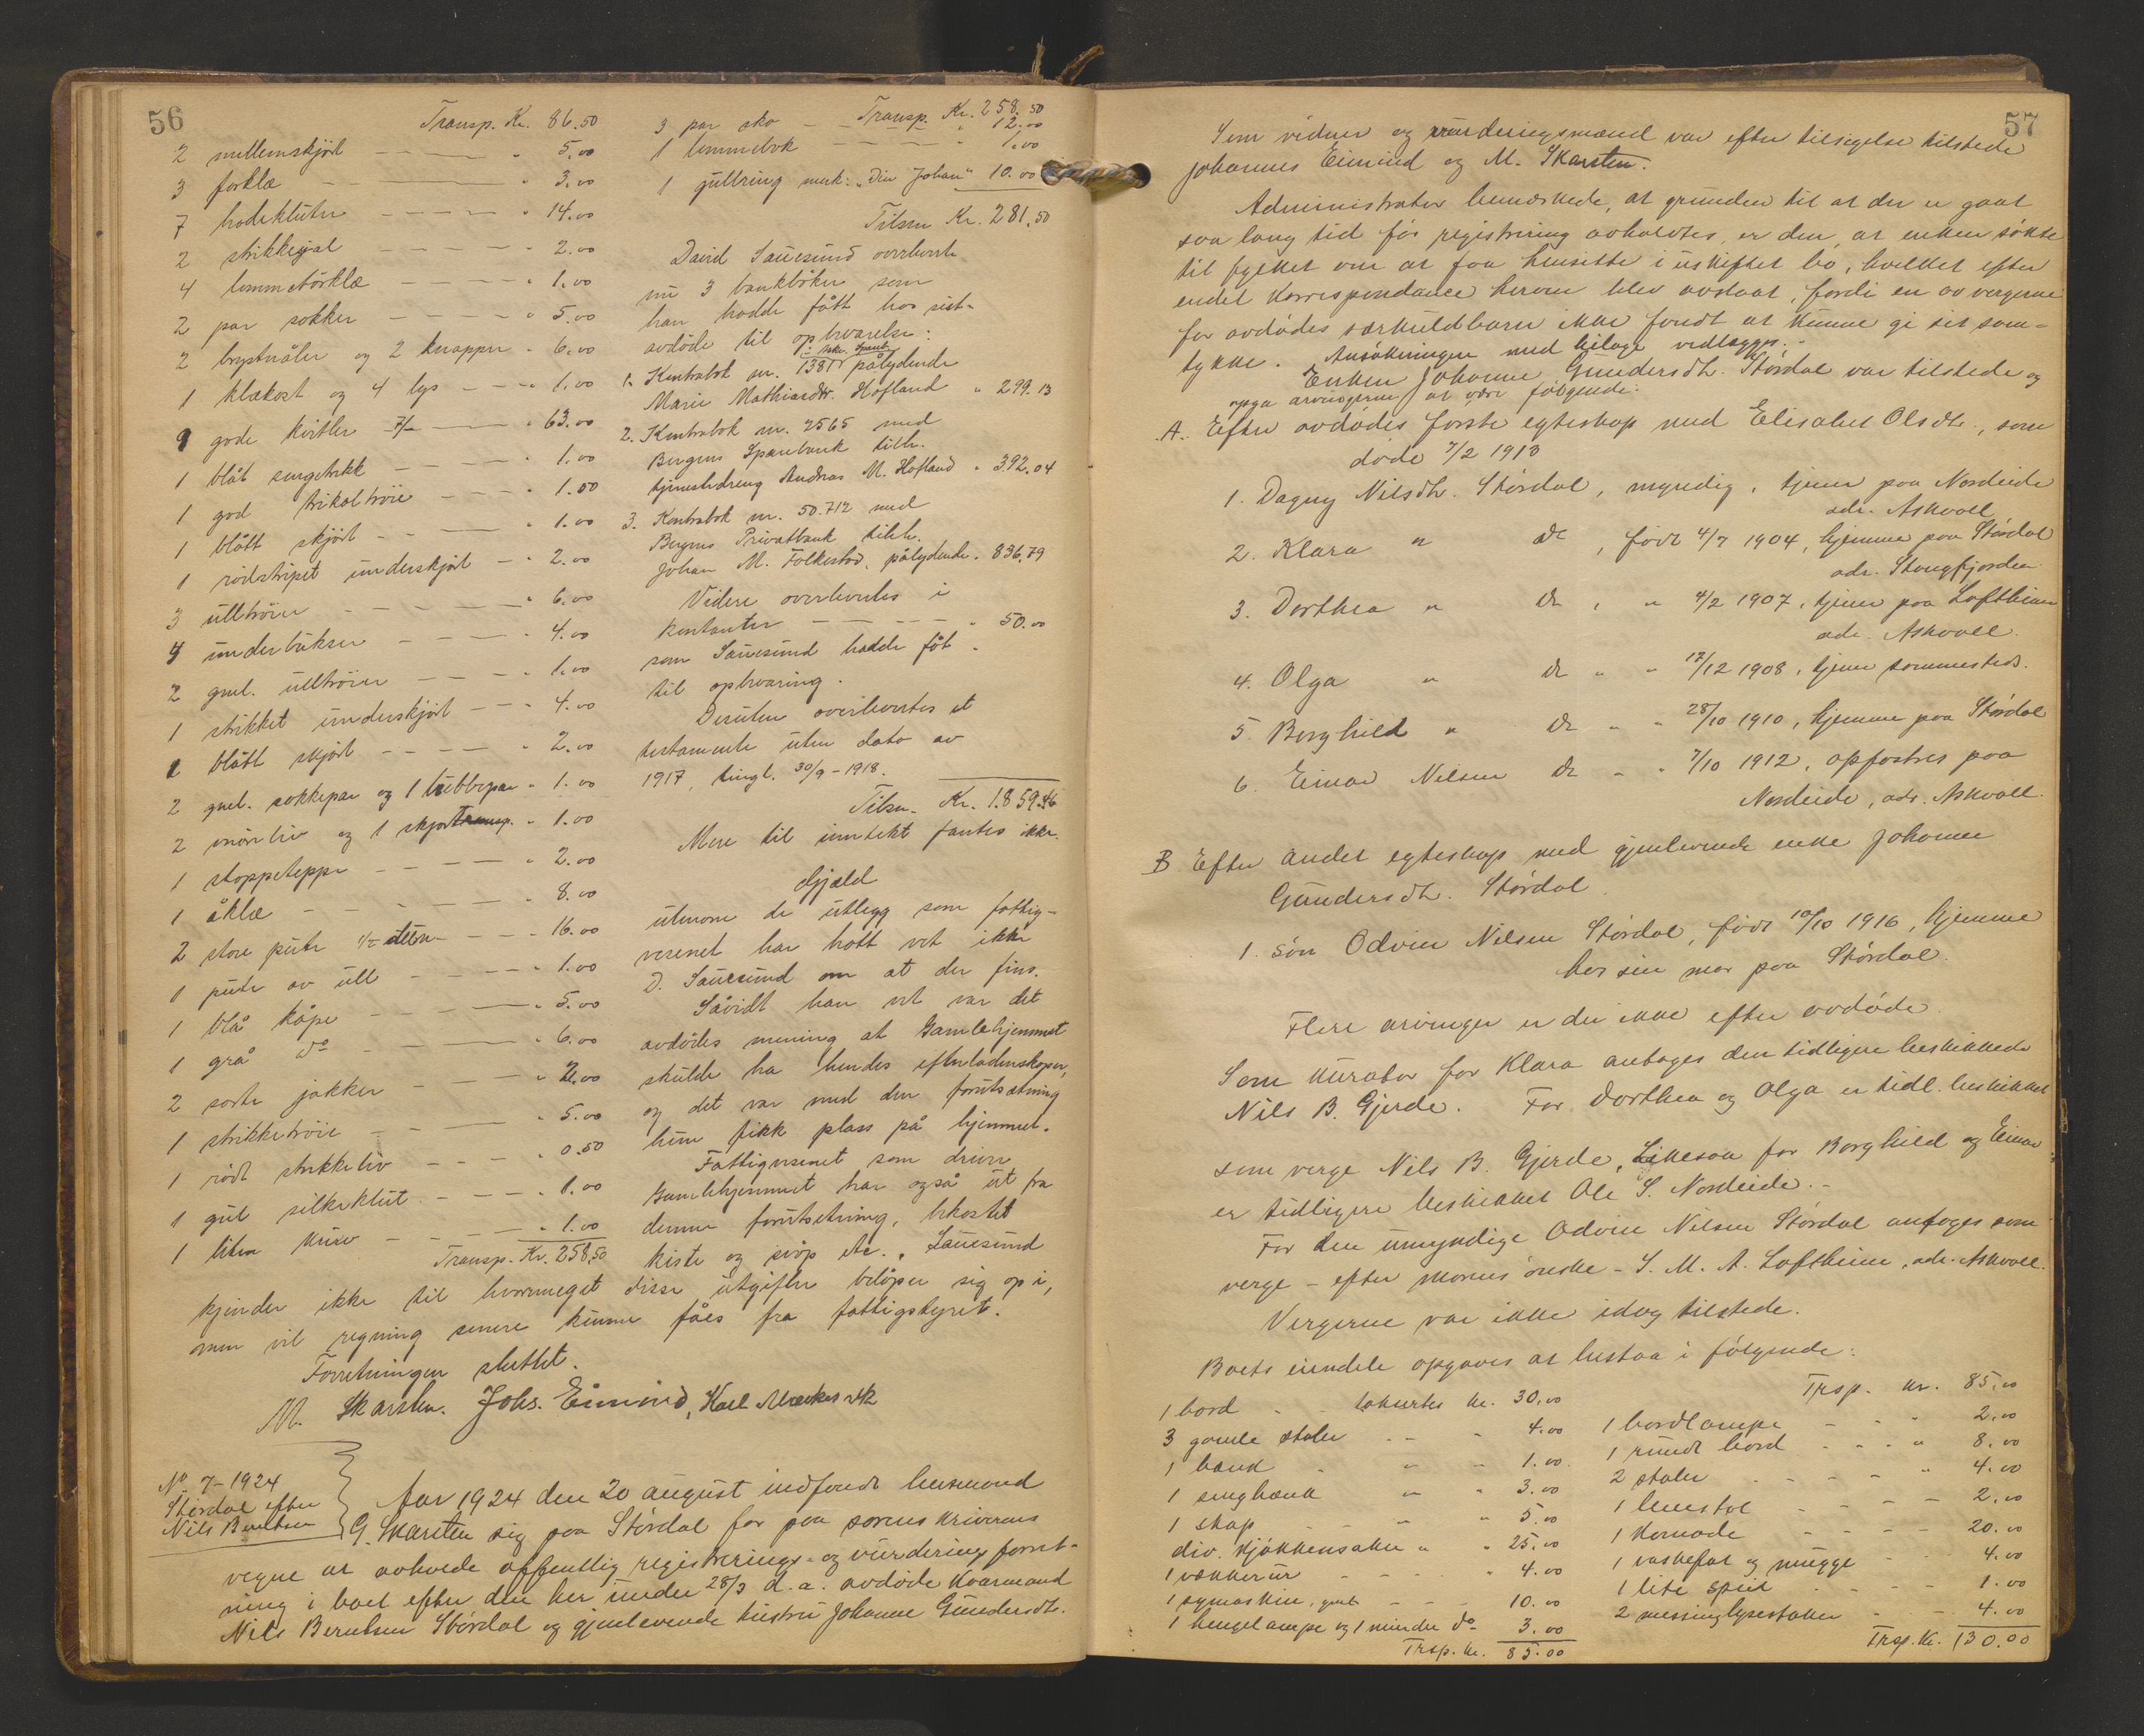 56
Transp. Kr. 86.50
2 mellemskjört — — — " 5.00
3 forklæ — — — " 3.00
7 hodekluter — — — " 14.00
2 strikkesjal — — — " 2.00
4 lommetörklæ — — — " 1.00
2 par sokker — — — " 5.00
2 brystnåler og 2 knapper " 6.00
1 klækost og 4 lys — — " 1.00
9 gode kvitler 7/- — " 63.00
1 blåt sengetrekk — — " 1.00
1 god trikoltröie — — " 1.50
1 blått skjört — — " 1.00
1 rödstripet underskjört — " 2.00
3 ulltröier — — — " 6.00
4 underbukser — — — " 4.00
2 gml. ulltröier — — — " 1.00
1 strikket underskjört — — " 4.00
1 blått skjört — — — " 2.00
2 gml. sokkepar og 1 lubbepar " 1.00
2 snörliv og 1 skjört " 1.00
1 stoppeteppe — — — " 2.00
1 åklæ — — — " 8.00
2 store puter — — " 16.00
1 pute av ull — — — " 1.00
1 blå kåpe — — — " 5.00
1 grå do — — — " 6.00
2 sorte jakker — — — " 2.00
1 strikketröie — — — " 5.00
1 rödt strikkeliv — — — " 0.50
1 gul silkeklut — — — " 1.00
1 liten kurv — — — " 1.00
Transp. Kr. 258.50
Transp. Kr. 258.50
3 par sko — — " 12.00
1 lommebok — — — " 1.00
1 gullring merk: "Din Johan" 10.00
Tilsm Kr. 281.50
David Sauesund overleverte
nu 3 bankböker som
han hadde fått hos sist-
avdöde til opbevarelse:
1. Kontrabok nr. 1381 pålydende
Marie Mathiasdtr. Hofland " 299.13
2. Kontrabok nr. 2565 med
Bergens Sparebank tilh.
tjenestedreng Andreas M. Hofland " 392.04
3. Kontrabok nr. 50.712 med
Bergens Privatbank tilh.
Johan M. Folkestad, pålydende " 836.79
Videre overlevertes i
kontanter — — — " 50.00
som Sauesund hadde fåt
til opbevaring.
Desuten overlevertes et
testamente uten dato av
1917, tingl. 30/9 - 1918.
Tilsm. Kr. 1.859.46
Mere til inntekt fantes ikke.
Gjæld
utenom de utlegg som fattig-
vesenet har hatt vet ikke
D. Sauesund om at der fins.
Såvidt han vet var det
avdödes mening at Gamlehjemmet
skulde ha hendes efterladenskaper,
og det var med den forutsetning
hun fikk plass på hjemmet.
Fattigvesenet som driver
Gamlehjemmet har også ut fra
denne forutsetning, bekostet
kiste og svöp etc. Sauesund
kjender ikke til hvormeget disse utgifter belöper sig op i,
men vil regning senere kunne fåes fra fattigstyret.
Forretningen sluttet.
M. Skarsten. Johs. Eimind, Karl
No 7 - 1924
Stórdal efter
Nils Berntsen
Aar 1924 den 20 august indfandt lensmand
G. Skarsten sig paa Stórdal for paa sorenskriverens
vegne at avholde offentlig registrerings- og vurderings forret-
ning i boet efter den her under 28/3 d.a. avdöde kaarmand
Nils Berntsen Stórdal og gjenlevende hustru Johanne Gundersdtr.
57
Som vidner og vurderingsmænd var efter tilsigelse tilstede
Johannes Eimind og M. Skarsten.
Administrator bemerkede, at grunden til at der er gaat
saa lang tid för registrering avholdtes, er den, at enken sökte
til fylket om at faa hensitte i uskiftet bo, hvilket efter
endel korrespondance herom blev avslaat, fordi en av vergerne
for avdödes særkuldbarn ikke fandt at kunne gi sit sam-
tykke. Ansökningen med bilage vedlægges.
Enken Johanne Gundersdtr. Stórdal var tilstede og
opga arvingerne at være fölgende:
A. Efter avdödes förste egteskap med Elisabet Olsdtr., som
döde 7/2 1913
1. Dagny Nilsdtr. Stórdal, myndig, tjener paa Nordeide
adr. Askvoll
2. Klara " do , född 4/7 1904, hjemme paa Stórdal
adr. Stongfjorden
3. Dorthea " do , " 4/2 1907, tjener paa Loftheim
adr. Askvoll.
4. Olga " do " " 17/12 1908, tjener sammesteds.
5. Borghild " do " " 28/10 1910, hjemme paa Stórdal
6. Einar Nilsen do " " 7/10 1912, opfostres paa
Nordeide, adr. Askvoll.
B. Efter andet egteskap med gjenlevende enke Johanne
Gundersdtr. Stórdal.
1. sön Odvin Nilsen Stórdal, född 10/10 1916, hjemme
hos sin mor paa Stórdal.
Flere arvinger er der ikke efter avdöde.
Som kurator for Klara antages den tidligere beskikkede
Nils B. Gjerde. For Dorthea og Olga er tidl. beskikket
som verge Nils B. Gjerde, Likesaa for Borghild og Einar
er tidligere beskikket Ole S. Nordeide.-
For den umyndige Odvin Nilsen Stórdal antages som
verge - efter morens önske - S. M. A. Loftheim, adr. Askvoll.
Vergerne var ikke idag tilstede.
Boets eiendele opgaves at bestaa i fölgende:
1 bord - - taksertes kr. 30.00
3 gamle stoler - - " 4.00
1 bænk " " " 1.00
1 sengbænk " " 3.00
1 skap - " " 5.00
div. kjökkensaker " " 25.00
1 vækkerur - - " 4.00
1 symaskin, gml. - - 10.00
1 hengelampe og 1 mindre do 3.00
Trsp. kr. 85.00
Trsp. kr. 85.00
1 bordlampe - - " 2.00
1 rundt bord - - " 8.00
2 stoler - - - " 4.00
1 lenestol - - - 2.00
1 komode - - - 20.00
1 vaskefat og mugge - 4.00
1 lite speil - - - 1.00
2 messinglysestaker - - 4.00
Trsp. Kr. 130.00